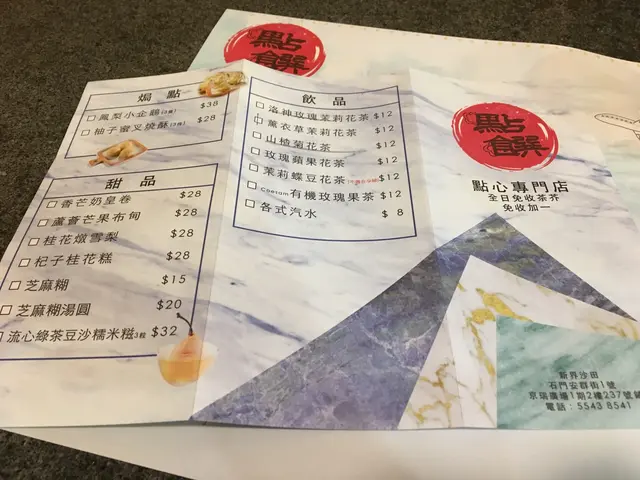 點
饌
焗點
鳳梨小企鵝(3隻) $38
柚子蜜叉燒酥(3件) $28
甜品
香芒奶皇卷 $28
蘆薈芒果布甸 $28
桂花燉雪梨 $28
杞子桂花糕 $28
芝麻糊 $15
芝麻糊湯圓 $20
流心綠茶豆沙糯米糍3粒 $32
飲品
洛神玫瑰茉莉花茶 $12
薰衣草茉莉花茶 $12
山楂菊花茶 $12
玫瑰蘋果花茶 $12
茉莉蝶豆花茶 $12
有機玫瑰果茶 $12
各式汽水 $8
點
饌
點心專門店
全日免收茶芥
免收加一
新界沙田
石門安群街1號
京瑞廣場1期2樓237號舖
電話：5543 8541